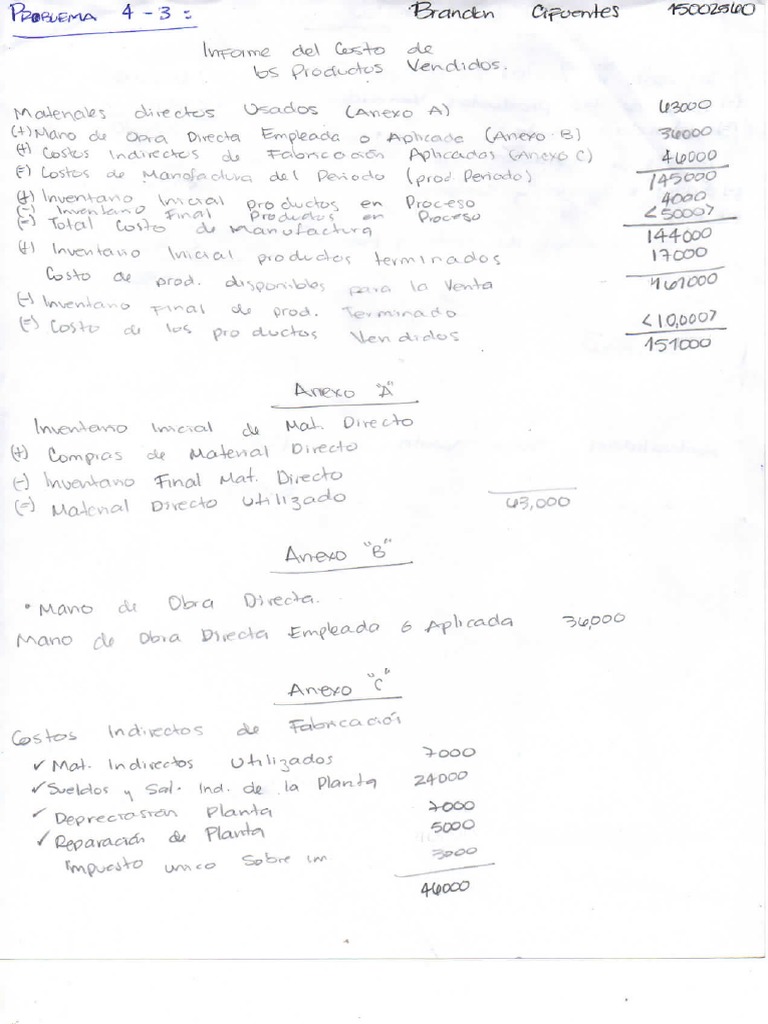 PROBLEMA 4-3: Branden Cifuentes 150025
Informe del Costo de
los Productos Vendidos.
Materiales directos Usados (Anexo A) 63000
(+) Mano de Obra Directa Empleada o Aplicada (Anexo B) 36000
(+) Costos Indirectos de Fabricación Aplicados (Anexo C) 46000
(=) Costos de Manofactura del Periodo (prod. Periodo) 145000
(+) Inventario Inicial productos en Proceso 4000
(-) Inventario Final Productos en Proceso <5000>
(=) Total Costo de Manufactura 144000
(+) Inventario Inicial productos terminados 17000
Costo de prod. disponibles para la Venta 161000
(-) Inventario Final de prod. Terminado <10,000>
(=) Costo de los productos Vendidos 151000
Anexo "A"
Inventario Inicial de Mat. Directo
(+) Compras de Material Directo
(-) Inventario Final Mat. Directo
(=) Material Directo Utilizado 63,000
Anexo "B"
• Mano de Obra Directa.
Mano de Obra Directa Empleada ó Aplicada 36,000
Anexo "C"
Costos Indirectos de Fabricación
✓ Mat. Indirectos Utilizados 7000
✓ Sueldos y Sal. Ind. de la Planta 24000
✓ Depreciasión Planta 7000
✓ Reparación de Planta 5000
Impuesto unico Sobre im 3000
46000